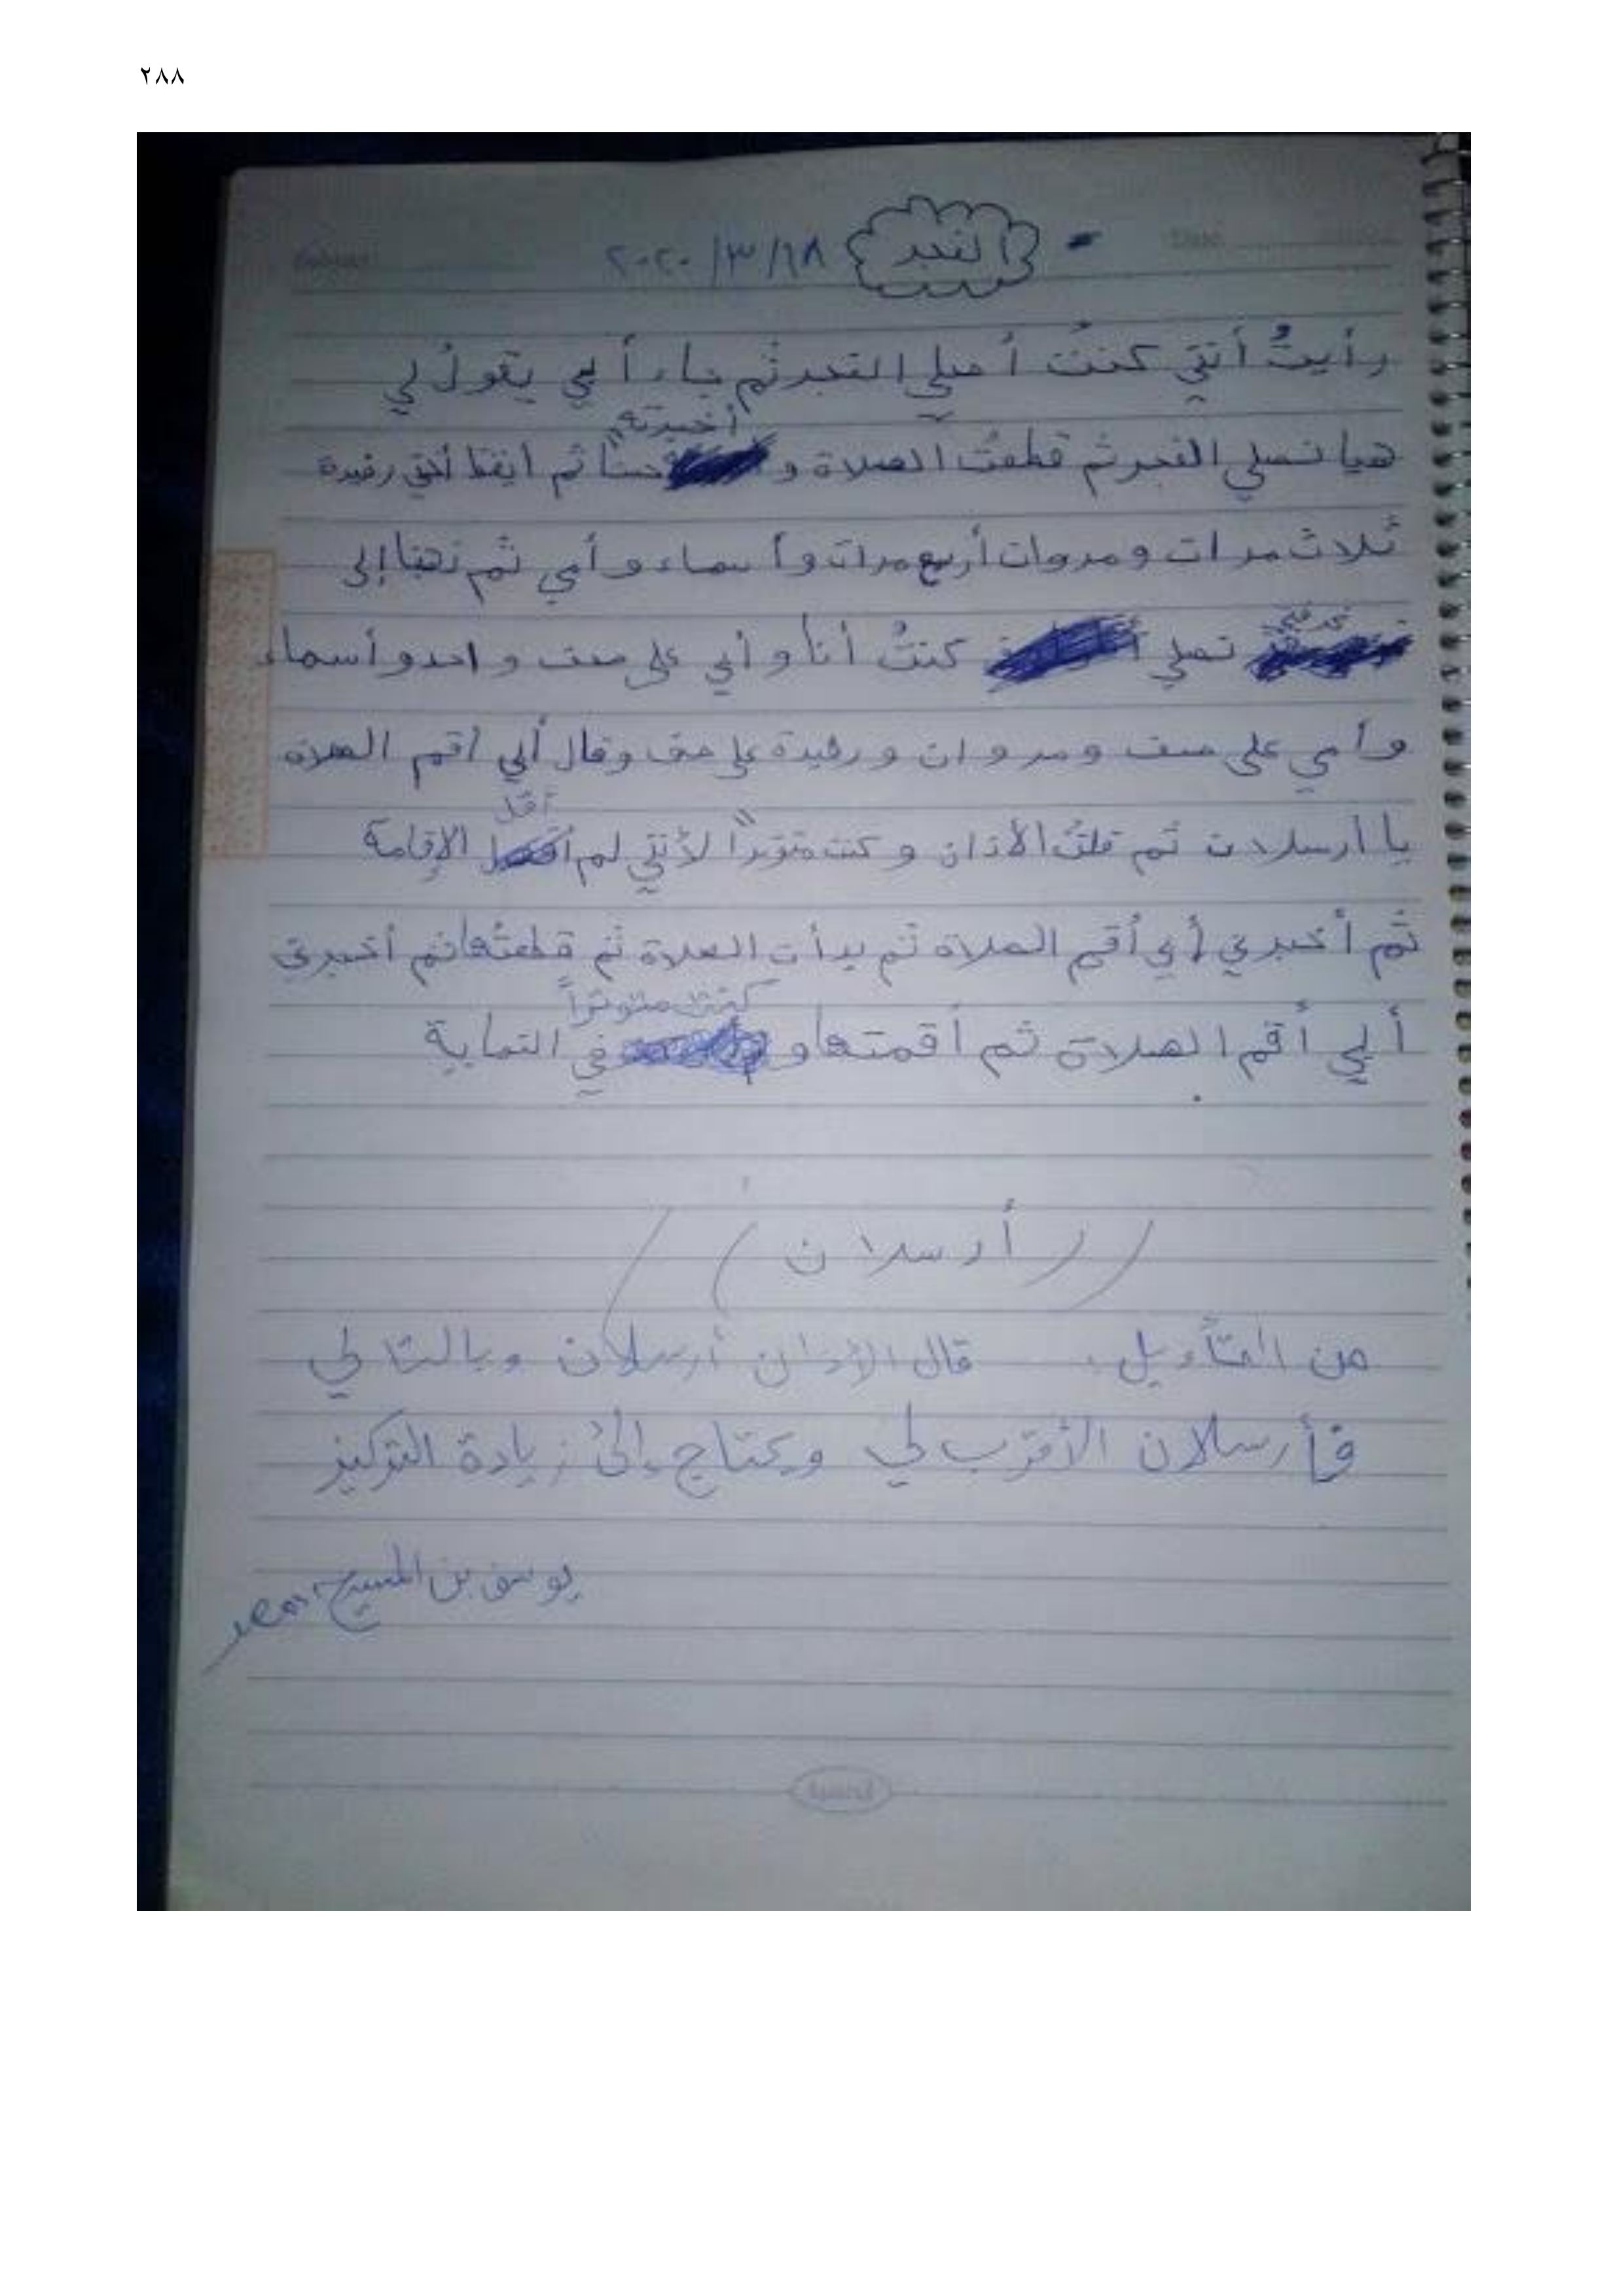 ٢٨٨
- الفجر ١٨/٣/٢٠٢٠
رأيتُ أنني كنتُ أصلي الفجر ثم جاء أبي يقولُ لي
أخبرته
هيا نصلي الفجر ثم قطعتُ الصلاة و حسناً ثم ايقظ أختي رفيدة
ثلاث مرات ومروان أربع مرات وأسماء وأمي ثم ذهبنا إلى
غرفتي
نصلي كنتُ أنا و أبي على صف واحد وأسماء
وأمي على صف ومروان ورفيدة على صف وقال أبي أقم الصلاة
أقل
يا أرسلان ثم قلتُ الأذان و كنت متوتراً لأنني لم الإقامة
ثم أخبرني أبي أقم الصلاة ثم بدأت الصلاة ثم قطعتُها ثم أخبرني
كنت متوتراً
أبي أقم الصلاة ثم أقمتها و في النهاية
((أرسلان))
من التأويل: قال الأذان أرسلان وبالتالي
فأرسلان الأقرب لي ويحتاج إلى زيادة التركيز
يوسف بن المسيح، مصر